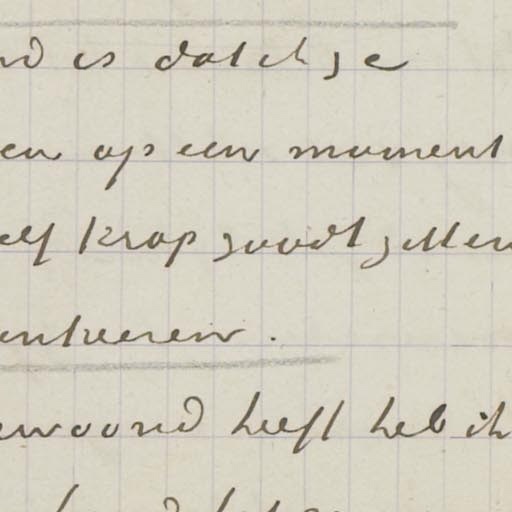 nd is dat ik ze
en op een moment
elf krap goodt zitten
enteeren.
ewoond heeft heb ik